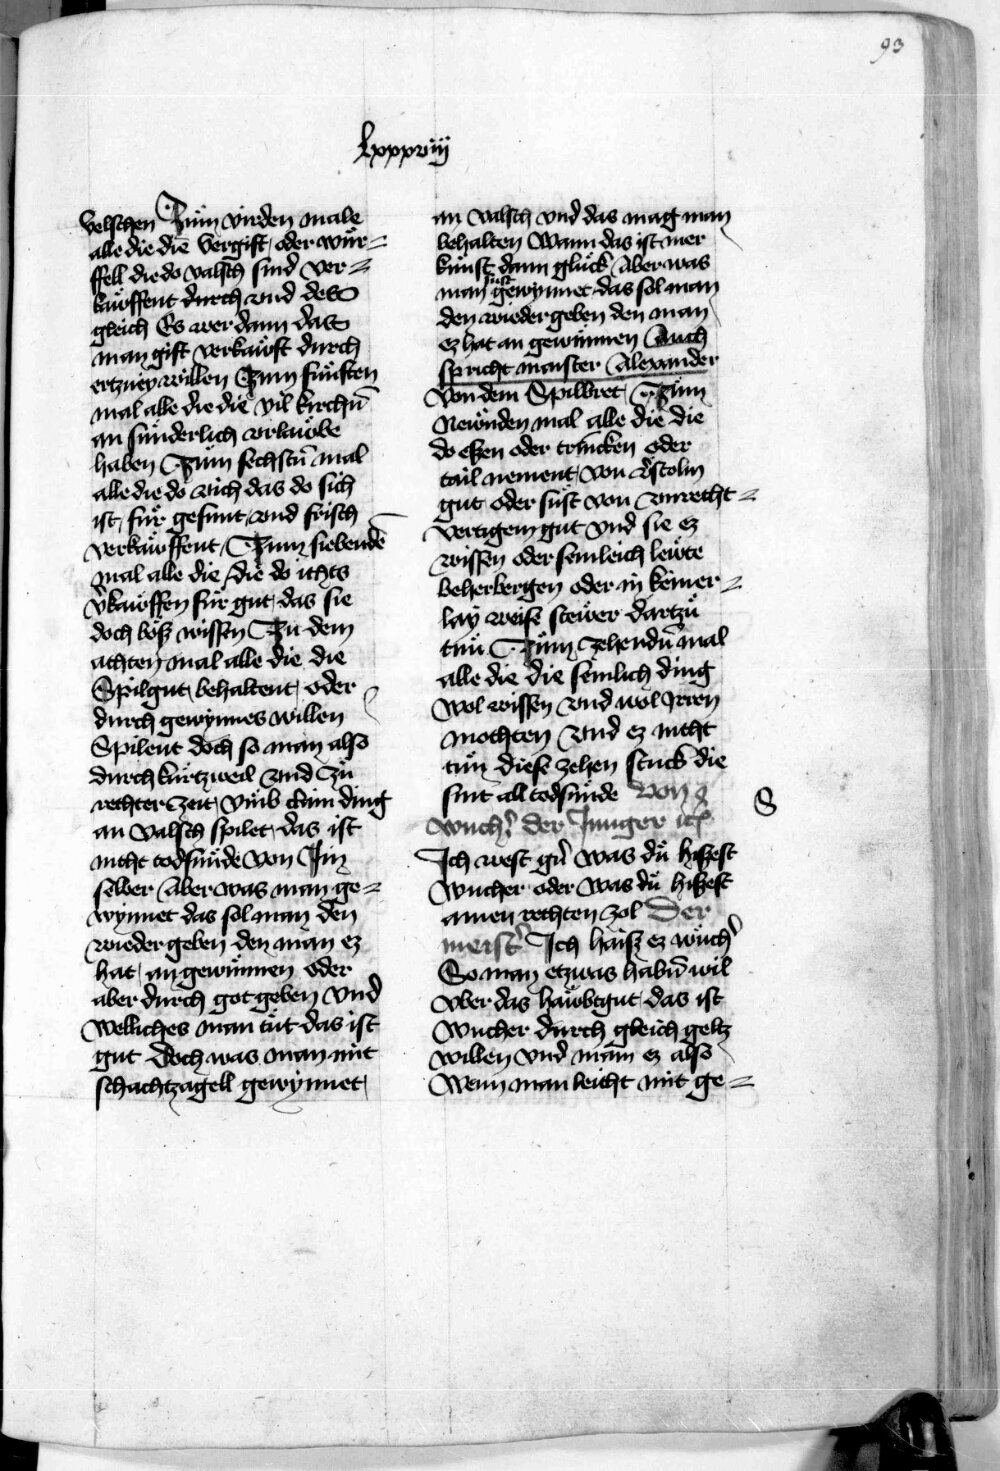 93
lxxxviij
velschen Zum virden male
alle die die vergift oder wür¬
ffell die do valsch sind ver¬
kaüffent durch vnd des
gleich Es wer dann das
man gift verkaüft durch
ertzney willen Zum fünften
mal alle die die vil kirchen̄
an sünderlich vrlaübe
haben Zum sechsten̄ mal
alle die do vich das do sich
ist für gesunt vnd frisch
verkaüffent Zum siebendē
mal alle die die do ichts
v̓kaüffen für gut das sie
doch böß wissen Zu dem
achten mal alle die die
Spilgut behaltent oder
durch gewynnes willen
Spilent doch so man also
durch kürtzweil vnd zü
rechter zeit vmb klain ding
an valsch spilet das ist
nicht todsunde von Im
selber Aber was man ge¬
wynnet das sol man den
wieder geben den man ez
hat an gewünnen oder
aber durch got geben Vnd
welliches man tüt das ist
gut doch was man mit
schachtzagell gewynnet
an valsch vnd das mag man
behalten Wann das ist mer
künst dann glück Aber was
man süst gewynnet das sol man
den wieder geben den man
ez hat an gewünnen Auch
spricht maister Alexander
von dem Spilbret Zum
Neünden mal alle die die
do essen oder trincken oder
tail nement von v̓stoln
gut oder süst von vnrecht¬
vertigem gut vnd sie ez
wissen oder semleich leüte
beherbergen oder in keiner¬
lay weise steüer dartzü
tun Zum zehenden̄ mal
alle die die semlich ding
wol wissen vnd wol Irren
mochten vnd ez nicht
tün diese zehen stuck die
sint all todsunde Von
wuch̓ der Junger
Ich west gern̓ was dü hissest
Wucher oder was dü hissest
ainen rechten zol Der
meist̓ Ich haiß ez wüch̓
So man etzwas haben̄ wil
vber das haübtgut das ist
Wucher durch gleich geltz
willen vnd main ez also
Wenn man leicht mit ge¬